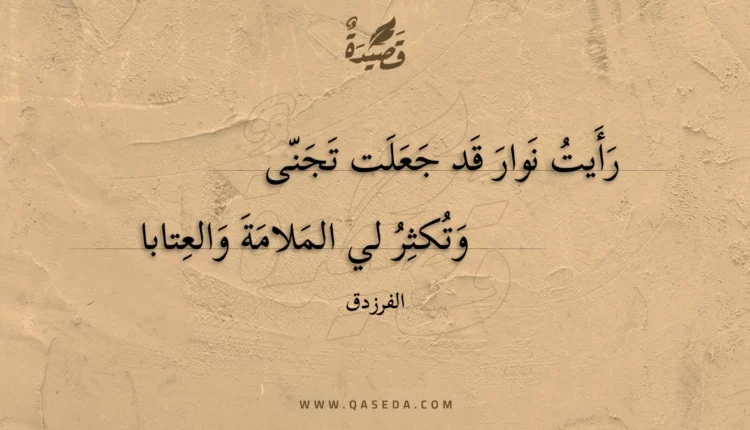 قَصِيدَةٌ
رَأَيتُ نَوارَ قَد جَعَلَت تَجَنّى
وَتُكثِرُ لي المَلامَةَ وَالعِتابا
الفرزدق
WWW.QASEDA.COM